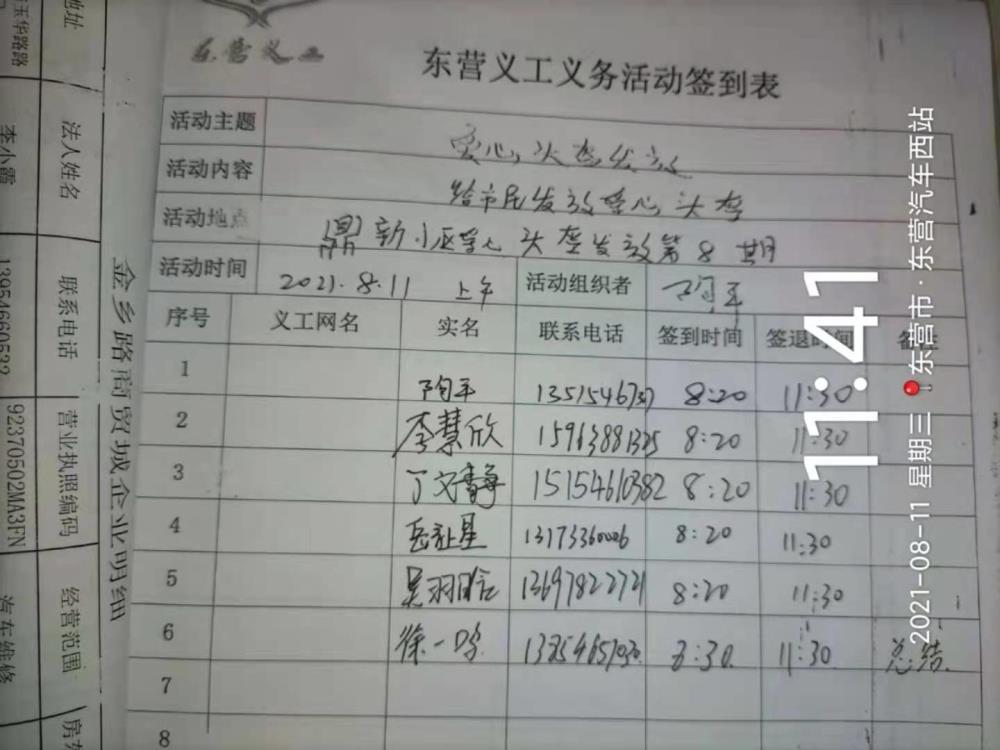 东营义工
东营义工义务活动签到表
活动主题 爱心头盔发放
活动内容 给市民发放爱心头盔
活动地点 鼎新小区爱心头盔发放第8期
活动时间 2021.8.11 上午 活动组织者 陶平
序号 义工网名 实名 联系电话 签到时间 签退时间 备注
1 陶平 8:20 11:30
2 李慧欣 15963881325 8:20 11:30
3 丁文静 15154610382 8:20 11:30
4 13173360006 8:20 11:30
5 13697822721 8:20 11:30
6 徐一鸣 8:30 11:30 总结
7
8
11:41
2021-08-11 星期三 东营市·东营汽车西站
金乡路商贸城企业明细
地址 法人姓名 联系电话 营业执照编码 经营范围
李小霞 13954660532 92370502MA3FN 汽车维修